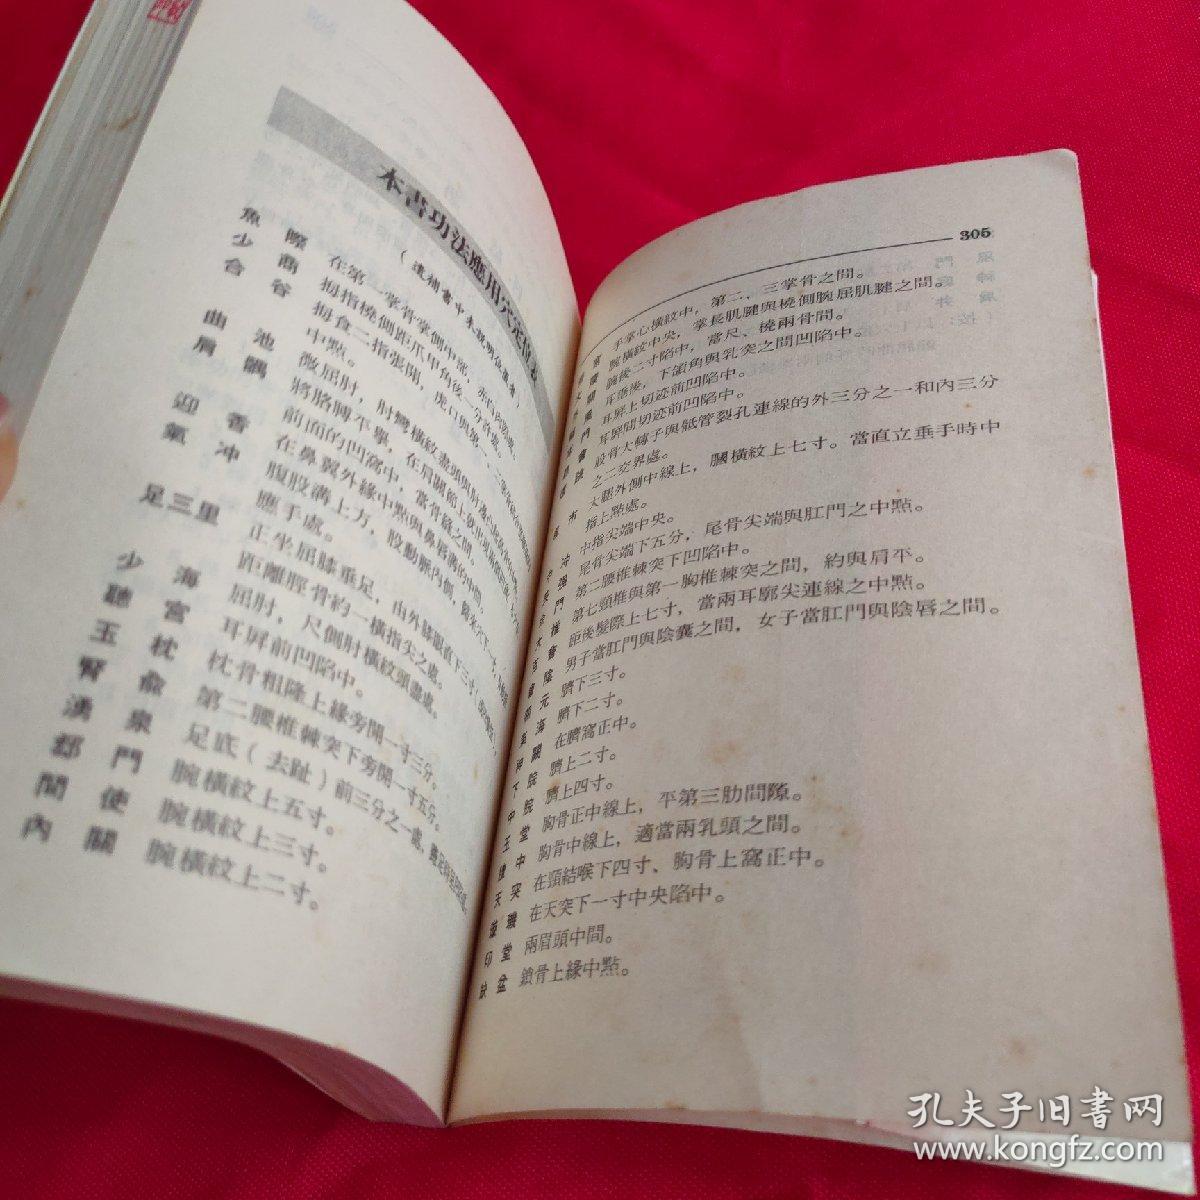 本書功法應用穴定位表
魚際 在第一掌骨掌側中部，赤白肉際處。
少商 拇指橈側距爪甲角後一分許處。
合谷 拇食二指張開，虎口與第一、二掌骨
中點。
曲池 微屈肘，肘彎橫紋盡頭
肩髃 將胳膊平舉，在肩關節上
前面的凹窩中，當骨縫之間。
迎香 在鼻翼外緣中點與鼻唇溝的中間。
氣冲 腹股溝上方，股動脈內側
應手處。
足三里 正坐屈膝垂足，由外膝眼直下三寸
距離脛骨約一橫指尖之處。
少海 屈肘，尺側肘橫紋頭盡處。
聽宮 耳屏前凹陷中。
玉枕 枕骨粗隆上緣旁開一寸三分。
腎俞 第二腰椎棘突下旁開一寸五分。
湧泉 足底（去趾）前三分之一處，
郄門 腕橫紋上五寸。
間使 腕橫紋上三寸。
內關 腕橫紋上二寸。
305
手掌心橫紋中，第二、三掌骨之間。
腕橫紋中央，掌長肌腱與橈側腕屈肌腱之間。
腕後二寸陷中，當尺、橈兩骨間。
耳垂後，下頜角與乳突之間凹陷中。
耳屏上切迹前凹陷中。
耳屏間切迹前凹陷中。
股骨大轉子與骶管裂孔連線的外三分之一和內三分
之二交界處。
市 大腿外側中線上，膕橫紋上七寸。當直立垂手時中
指上點處。
冲 中指尖端中央。
強 尾骨尖端下五分，尾骨尖端與肛門之中點。
門 第二腰椎棘突下凹陷中。
大椎 第七頸椎與第一胸椎棘突之間，約與肩平。
百會 距後髮際上七寸，當兩耳廓尖連線之中點。
會陰 男子當肛門與陰囊之間，女子當肛門與陰唇之間。
元 臍下三寸。
海 臍下二寸。
神闕 在臍窩正中。
下脘 臍上二寸。
中脘 臍上四寸。
玉堂 胸骨正中線上，平第三肋間隙。
膻中 胸骨中線上，適當兩乳頭之間。
天突 在頸結喉下四寸、胸骨上窩正中。
璇璣 在天突下一寸中央陷中。
印堂 兩眉頭中間。
缺盆 鎖骨上緣中點。
孔夫子旧書网
www.kongfz.com